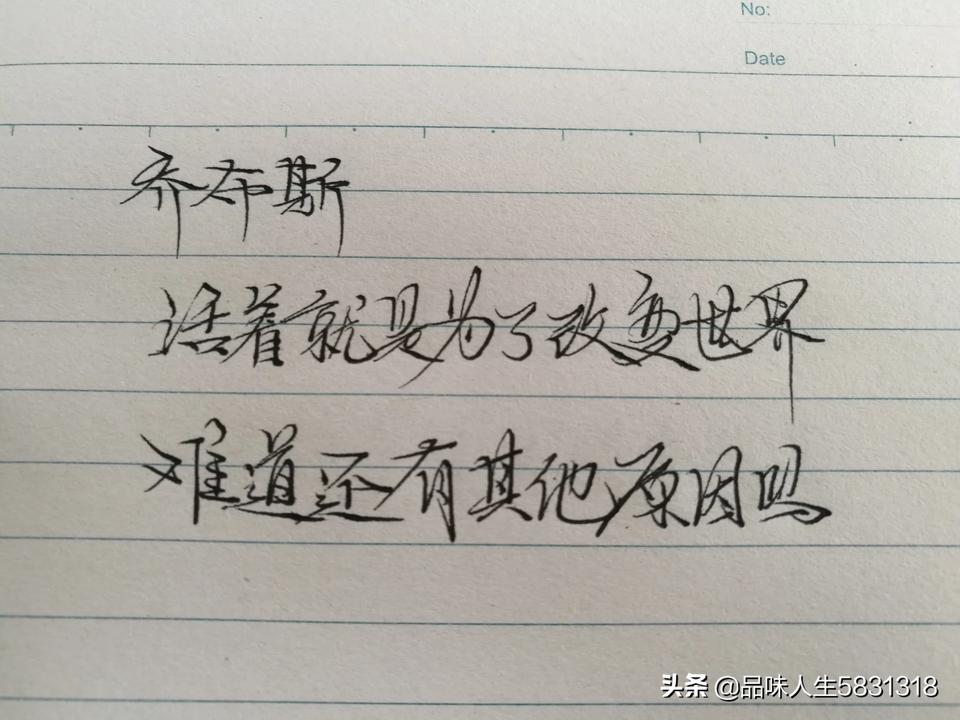 No:
Date
乔布斯
活着就是为了改变世界
难道还有其他原因吗
头条 @品味人生5831318